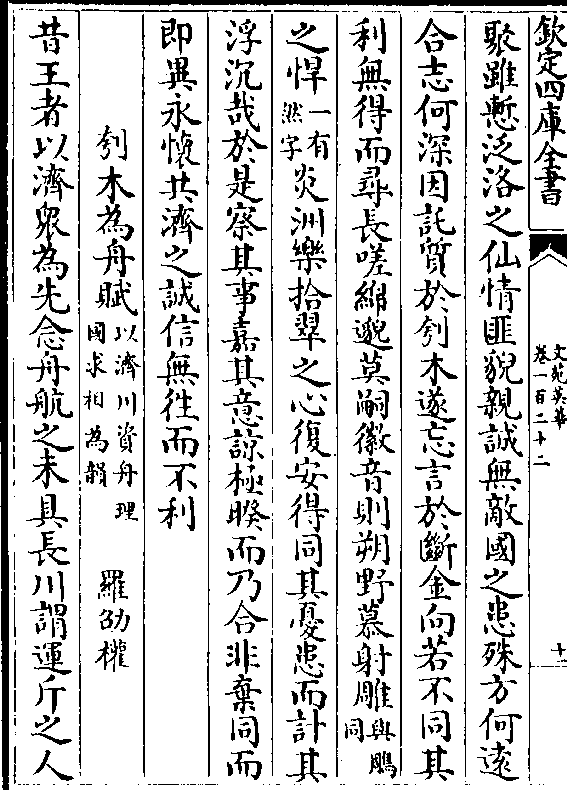 欽定四庫全書
文苑英華
卷一百二十二
十一
聚雖慙泛洛之仙情匪貌親誠無敵國之患殊方何逺
合志何深因託質於刳木遂忘言於斷金向若不同其
利無得而尋長嗟綿邈莫嗣徽音則朔野慕射雕與鵰同
之悍一有然字炎洲樂拾翠之心復安得同其憂患而計其
浮沉哉於是察其事嘉其意諒極暌而乃合非棄同而
即異永懷共濟之誠信無徃而不利
刳木為舟賦以濟川資舟理國求相為韻 羅劭權
昔王者以濟衆為先念舟航之未具長川謂運斤之人